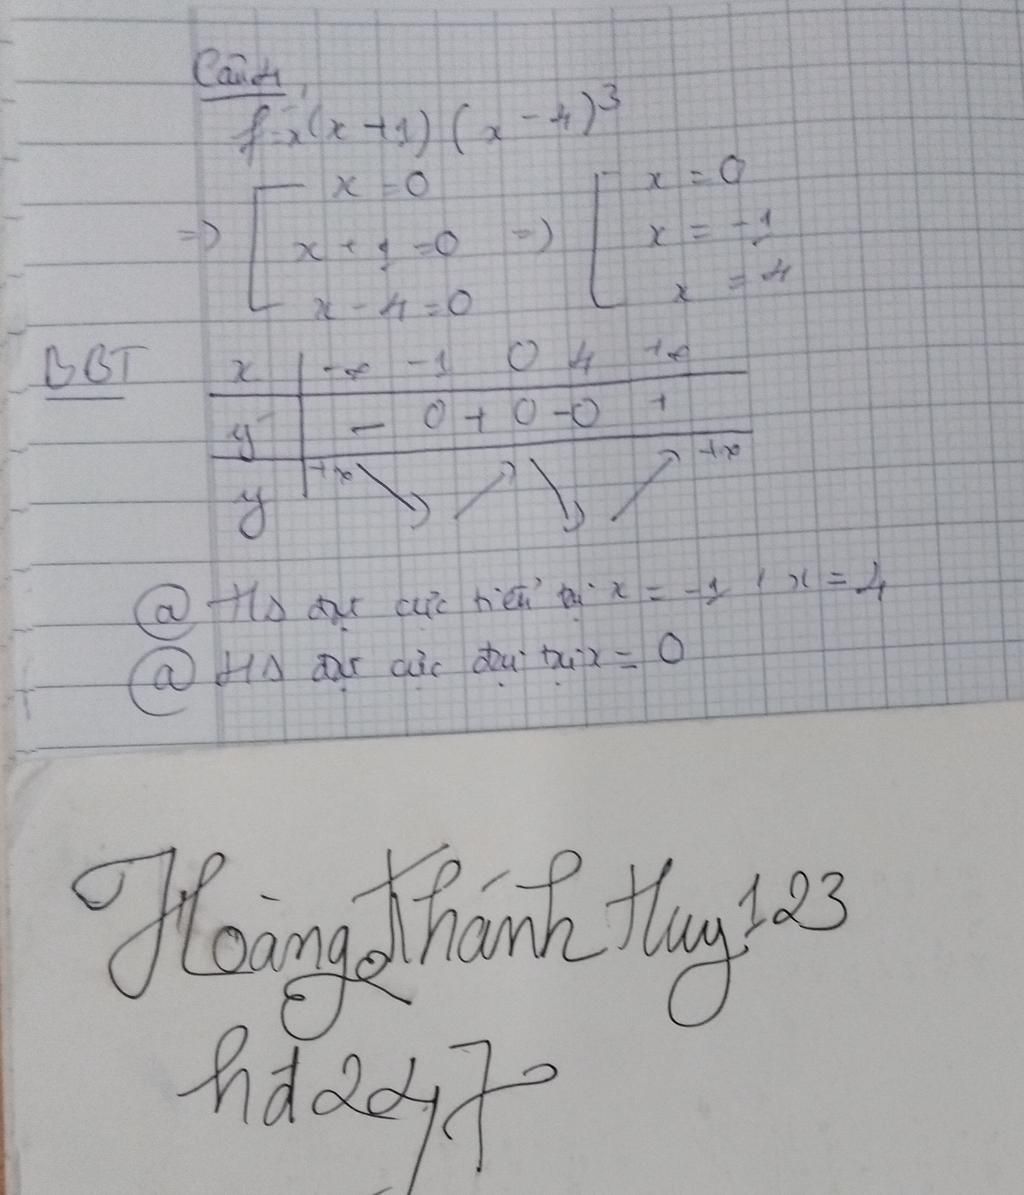 Câu 4
f = x(x + 1) (x - 4)³
=> [ x = 0 => [ x = 0
x + 1 = 0 x = -1
x - 4 = 0 x = 4
BBT x -∞ -1 0 4 +∞
y' - 0 + 0 - 0 +
y +∞ ↘ ↗ ↘ ↗ +∞
@ HS đạt cực tiểu tại x = -1 , x = 4
@ HS đạt cực đại tại x = 0
Hoàng Khánh Huy 123
hđ 247